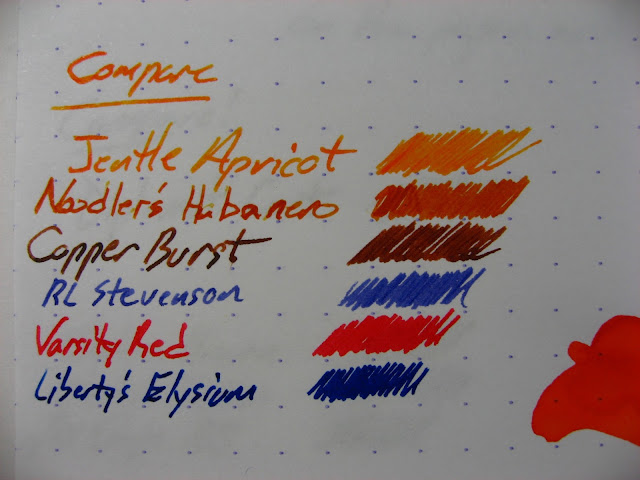 Compare
Jentle Apricot
Noodler's Habanero
Copper Burst
RL Stevenson
Varsity Red
Liberty's Elysium